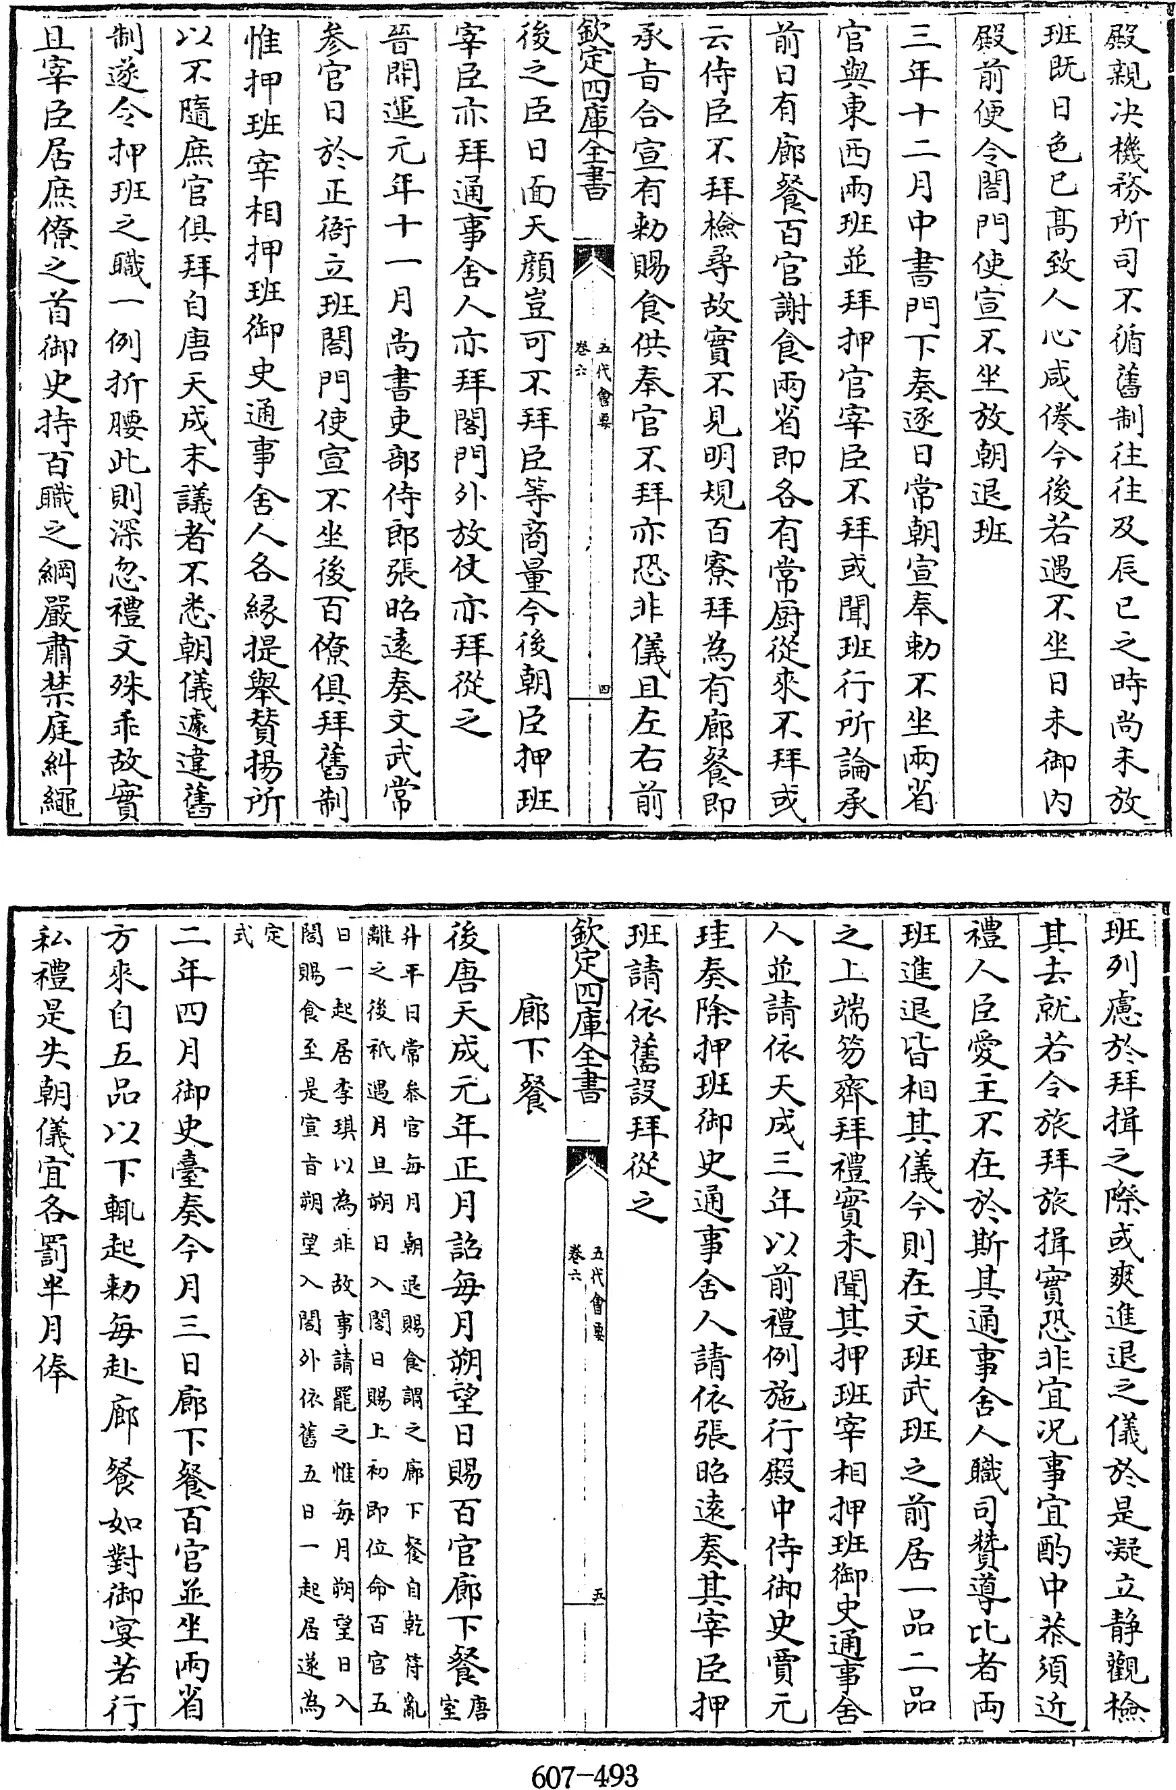 殿親决機務所司不循舊制往往及辰巳之時尚未放
班既日色已髙致人心咸倦今後若遇不坐日未御内
殿前便令閤門使宣不坐放朝退班
三年十二月中書門下奏逐日常朝宣奉勅不坐兩省
官與東西兩班並拜押官宰臣不拜或聞班行所論承
前日有廊餐百官謝食兩省即各有常厨從來不拜或
云侍臣不拜檢尋故實不見明規百寮拜為有廊餐即
承㫖合宣有勅賜食供奉官不拜亦恐非儀且左右前
欽定四庫全書
五代會要
卷六
四
後之臣日面天顔豈可不拜臣等商量今後朝臣押班
宰臣亦拜通事舍人亦拜閤門外放仗亦拜從之
晉開運元年十一月尚書吏部侍郎張昭逺奏文武常
參官日於正衙立班閤門使宣不坐後百僚俱拜舊制
惟押班宰相押班御史通事舍人各緣提舉賛揚所
以不隨庶官俱拜自唐天成末議者不悉朝儀遽違舊
制遂令押班之職一例折腰此則深忽禮文殊乖故實
且宰臣居庶僚之首御史持百職之綱嚴肅禁庭糾繩
班列慮於拜揖之際或爽進退之儀於是凝立静觀檢
其去就若令旅拜旅揖實恐非宜况事宜酌中恭須近
禮人臣愛主不在於斯其通事舍人職司贊導比者兩
班進退皆相其儀今則在文班武班之前居一品二品
之上端笏齊拜禮實未聞其押班宰相押班御史通事舍
人並請依天成三年以前禮例施行殿中侍御史賈元
珪奏除押班御史通事舍人請依張昭逺奏其宰臣押
班請依舊設拜從之
欽定四庫全書
五代會要
卷六
五
廊下餐
後唐天成元年正月詔每月朔望日賜百官廊下餐唐室
升平日常參官每月朝退賜食謂之廊下餐自乾符亂
離之後祇遇月旦朔日入閤日賜上初即位命百官五
日一起居李琪以為非故事請罷之惟每月朔望日入
閤賜食至是宣㫖朔望入閤外依舊五日一起居遂為
定式
二年四月御史臺奏今月三日廊下餐百官並坐兩省
方來自五品以下輒起勅每赴廊餐如對御宴若行
私禮是失朝儀宜各罰半月俸
607-493